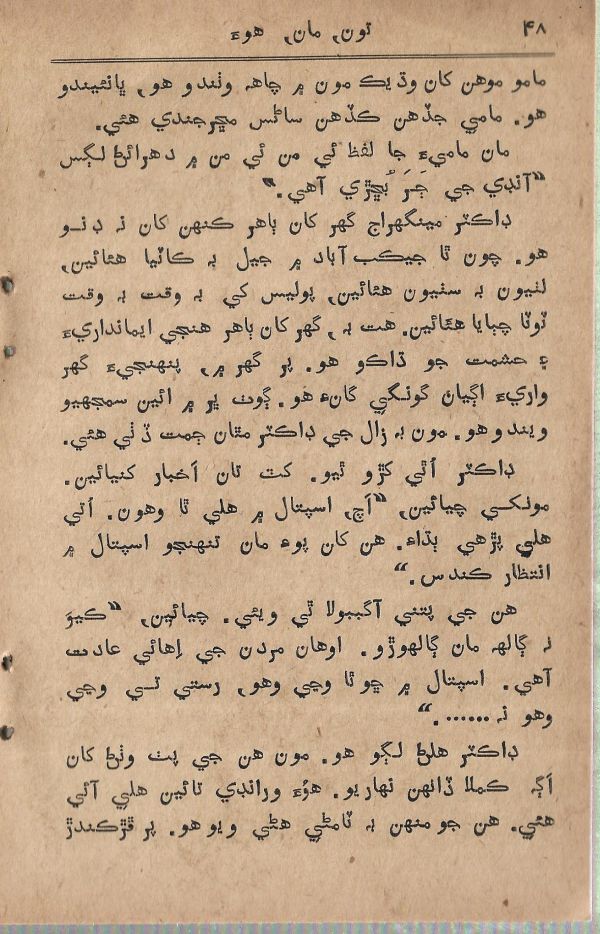 ۴۸ تون، مان، هوءَ
مامو موهن کان وڌيڪ مون ۾ چاهه وٺندو هو، ڀائنيندو
هو. مامي جڏهن ڪڏهن ساڻس مڇرجندي هئي.
مان ماميءَ جا لفظ ئي من ئي من ۾ دهرائڻ لڳس
”آنڊي جي جَرَ بُڇڙي آهي.“
ڊاڪٽر مينگهراج گهر کان ٻاهر ڪنهن کان نہ ڊنو
هو. چون ٿا جيڪب آباد ۾ جيل بہ ڪاٽيا هئائين،
لٺيون بہ سٺيون هئائين، پوليس کي بہ وقت بہ وقت
ٽوٽا چٻايا هئائين. هت بہ، گهر کان ٻاهر هنجي ايمانداريءَ
۽ حشمت جو ڌاڪو هو. پر گهر ۾، پنهنجيءَ گهر
واريءَ اڳيان گونگي گانءِ هو. ڳوٺ ڀر ۾ ائين سمجهيو
ويندو هو. مون بہ زال جي ڊاڪٽر مٿان ڄمت ڏٺي هئي.
ڊاڪٽر اُٿي کڙو ٿيو. کٽ تان اَخبار کنيائين.
مونکسي چيائين، ”اَچ، اسپتال ۾ هلي ٿا وهون. اُتي
هلي پڙهي ٻڌاءِ. هن کان پوءِ مان تنهنجو اسپتال ۾
انتظار ڪندس.“
هن جي پتني آگببولا ٿي ويئي. چيائين، ”کيوَ
نہ ڳالهہ مان ڳالهوڙو. اوهان مردن جي اِهائي عادت
آهي. اسپتال ۾ ڇو ٿا وڃي وهو، رستي تسي وڃي
وهو نہ.......“
ڊاڪٽر هلڻ لڳو هو. مون هن جي پٺ وٺڻ کان
اَڳہ ڪملا ڏانهن نهاريو. هوُءَ ورانڊي تائين هلي آئي
هئي. هن جو منهن بہ ٽامڻي هڻي ويو هو. پر ڦڙڪندڙ